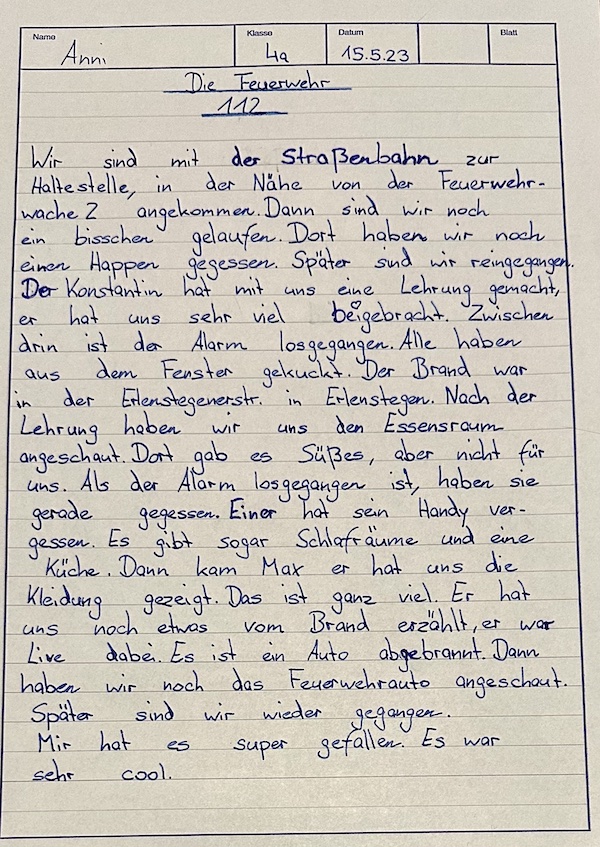 Name Klasse Datum Blatt
Anni 4a 15.5.23
Die Feuerwehr
112
Wir sind mit der Straßenbahn zur
Haltestelle, in der Nähe von der Feuerwehr-
wache 2 angekommen. Dann sind wir noch
ein bisschen gelaufen. Dort haben wir noch
einen Happen gegessen. Später sind wir reingegangen.
Der Konstantin hat mit uns eine Lehrung gemacht,
er hat uns sehr viel beigebracht. Zwischen
drin ist der Alarm losgegangen. Alle haben
aus dem Fenster gekuckt. Der Brand war
in der Erlenstegenerstr. in Erlenstegen. Nach der
Lehrung haben wir uns den Essensraum
angeschaut. Dort gab es Süßes, aber nicht für
uns. Als der Alarm losgegangen ist, haben sie
gerade gegessen. Einer hat sein Handy ver-
gessen. Es gibt sogar Schlafräume und eine
Küche. Dann kam Max er hat uns die
Kleidung gezeigt. Das ist ganz viel. Er hat
uns noch etwas vom Brand erzählt, er war
Live dabei. Es ist ein Auto abgebrannt. Dann
haben wir noch das Feuerwehrauto angeschaut.
Später sind wir wieder gegangen.
Mir hat es super gefallen. Es war
sehr cool.